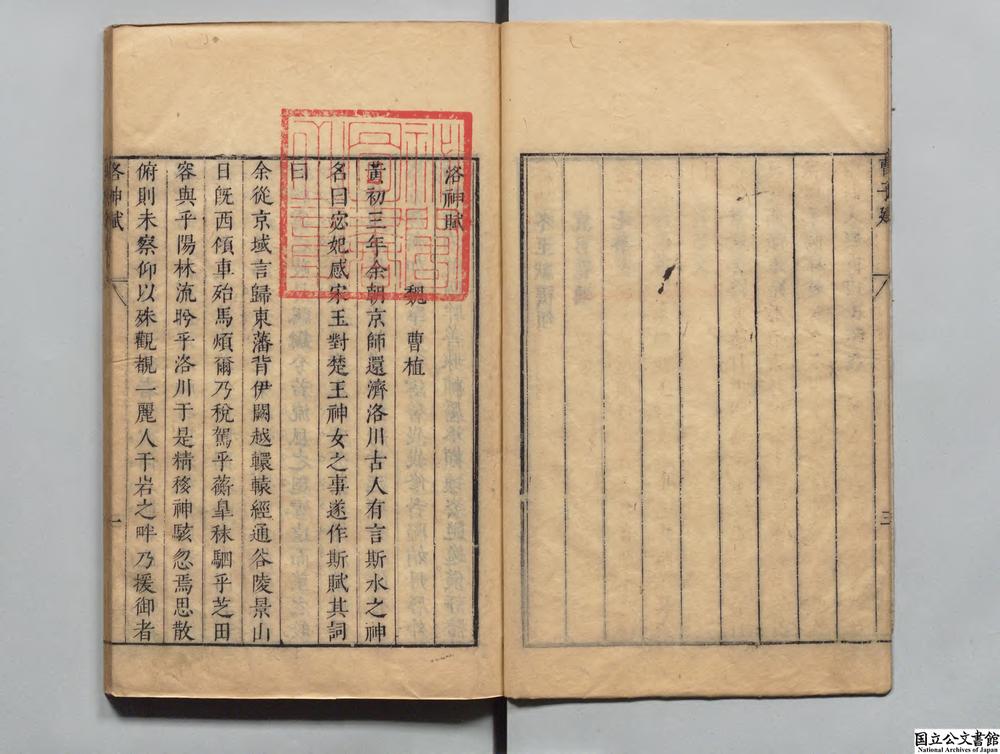 曹子建
三
洛神賦
魏 曹植
黃初三年余朝京師還濟洛川古人有言斯水之神
名曰宓妃感宋玉對楚王神女之事遂作斯賦其詞
曰
余從京域言歸東藩背伊闕越轘轅經通谷陵景山
日旣西傾車殆馬煩爾乃稅駕乎蘅皐秣駟乎芝田
容與乎陽林流眄乎洛川于是精移神駭忽焉思散
俯則未察仰以殊觀覩一麗人于岩之畔乃援御者
洛神賦
一
国立公文書館
National Archives of Japan